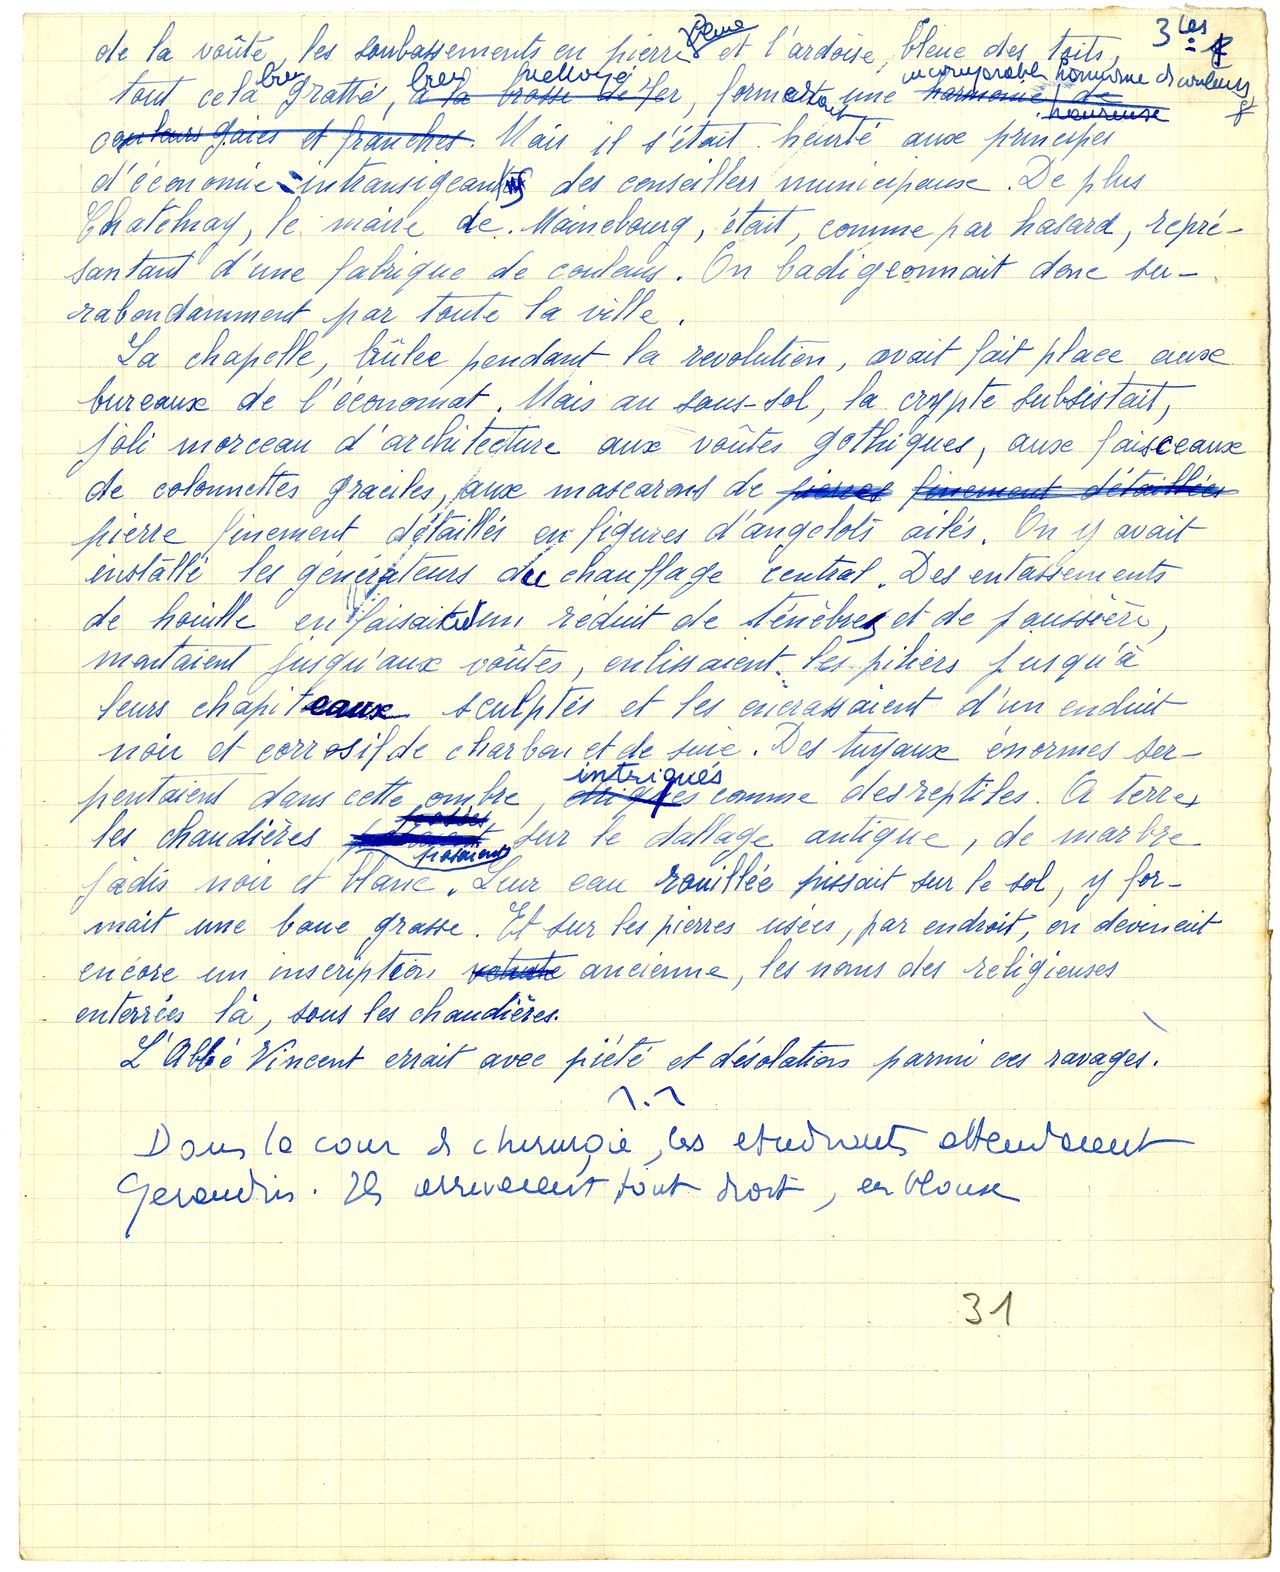 3
de la voûte, les soubassements en pierre et l'ardoise bleue des toits,
bien bien nettoyé incomparable harmonie de couleurs
tout cela gratté, à la brosse de fer, une harmonie de
heureuse
couleurs gaies et franches. Mais il s'était heurté aux principes
d'économie intransigeants des conseillers municipaux. De plus
Chatelnay, le maire de Mainebourg, était, comme par hasard, repré-
santant d'une fabrique de couleurs. On badigeonnait donc su-
rabondamment par toute la ville.
La chapelle, brûlée pendant la revolution, avait fait place aux
bureaux de l'économat. Mais au sous-sol, la crypte subsistait,
joli morceau d'architecture aux voûtes gothiques, aux faisceaux
de colonnettes graciles, aux mascarons de pierres finement détaillées
pierre finement détaillés en figures d'angelots ailés. On y avait
installé les générateurs du chauffage central. Des entassements
de houille en faisaient un réduit de ténèbres et de poussière,
montaient jusqu'aux voûtes, enlisaient les piliers jusqu'à
leurs chapiteaux sculptés et les encrassaient d'un enduit
noir et corrosif de charbon et de suie. Des tuyaux énormes ser-
intriqués
pentaient dans cette ombre, comme des reptiles. A terre,
les chaudières sur le dallage antique, de marbre
posaient
jadis noir et blanc. Leur eau rouillée pissait sur le sol, y for-
mait une boue grasse. Et sur les pierres usées, par endroit, on devinait
encore un inscription ancienne, les noms des religieuses
enterrées là, sous les chaudières.
L'Abbé Vincent errait avec piété et désolation parmi ces ravages.
Dans la cour de chirurgie, les etudiants attendaient
Geraudin. Ils arrivaient tout droit, en blouse
31